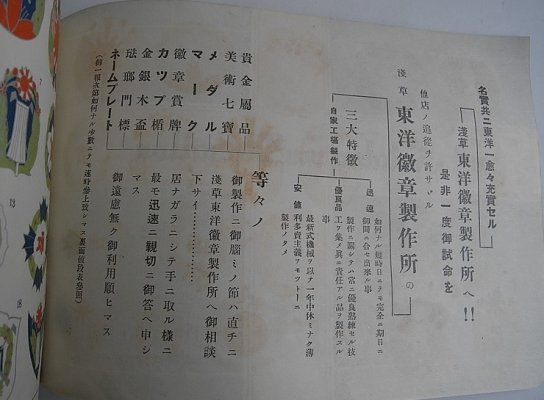 名實共ニ東洋一愈々充實セル
淺草東洋徽章製作所へ!!
是非一度御試命を
他店ノ追從ヲ許サヾル
淺草東洋徽章製作所の
三大特徴
自家工場製作
迅速
如何ナル短時日ニテモ完全ニ期日ニ
御間ニ合セ出來ル事
優良品
製作ニ際シテハ常ニ優良熟練セル技
工ヲ集メ眞ニ責任アル品ヲ製作スル
事
安値
最新式機械ヲ以テ一年中休ミナク薄
利多賣主義ヲモツトーニ
製作ノタメ
貴金屬品
美術七寶
メダル
マーク
徽章賞牌
カツプ楯
金銀木盃
琺瑯門標
ネームプレート
等々ノ
御製作ニ御腦ミノ節ハ直チニ
淺草東洋徽章製作所へ御相談
下サイ
居ナガラニシテ手ニ取ル樣ニ
最モ迅速ニ親切ニ御答ヘ申シ
マス
御遠慮無ク御利用願ヒマス
(御一報次第如何ナル少數ニテモ速時參上致シマス裏面値段表參照)